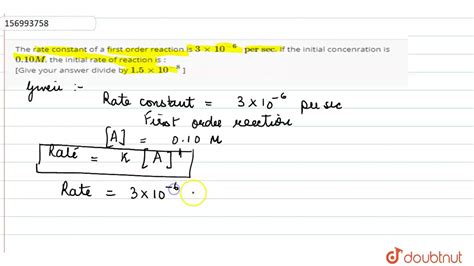 156993758
The rate constant of a first order reaction is 3 × 10⁻⁶ per sec. If the initial concenration is
0.10M, the initial rate of reaction is :
[Give your answer divide by 1.5 × 10⁻⁸ ]
Given :-
Rate constant = 3×10⁻⁶ per sec
First order reection
[A] = 0.10 M
Rate = K [A]¹
Rate = 3×10⁻⁶ ·
doubtnut